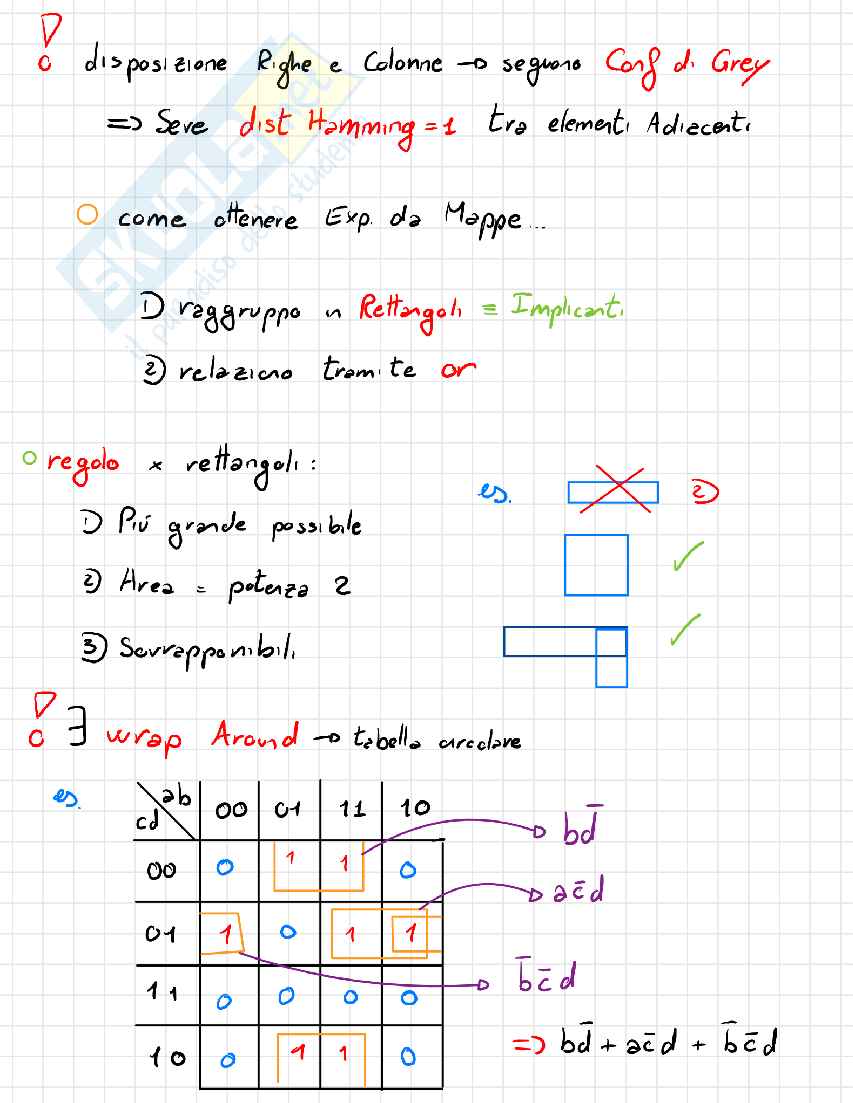 ! disposizione Righe e Colonne → seguono Conf di Grey
=> Serve dist Hamming = 1 tra elementi Adiacenti
come ottenere Exp. da Mappe...
1) raggruppo in Rettangoli ≡ Implicanti
2) relaziono tramite or
regole x rettangoli:
es. 2)
1) Più grande possibile
✓
2) Area = potenza 2
3) Sovrapponibili ✓
! ∃ wrap Around → tabella circolare
es.
ab
cd 00 01 11 10
00 0 1 1 0
01 1 0 1 1
11 0 0 0 0
10 0 1 1 0
bd̅
ac̅d
b̅c̅d
=> bd̅ + ac̅d + b̅c̅d
SKUOLA.net
il paradiso dello studente